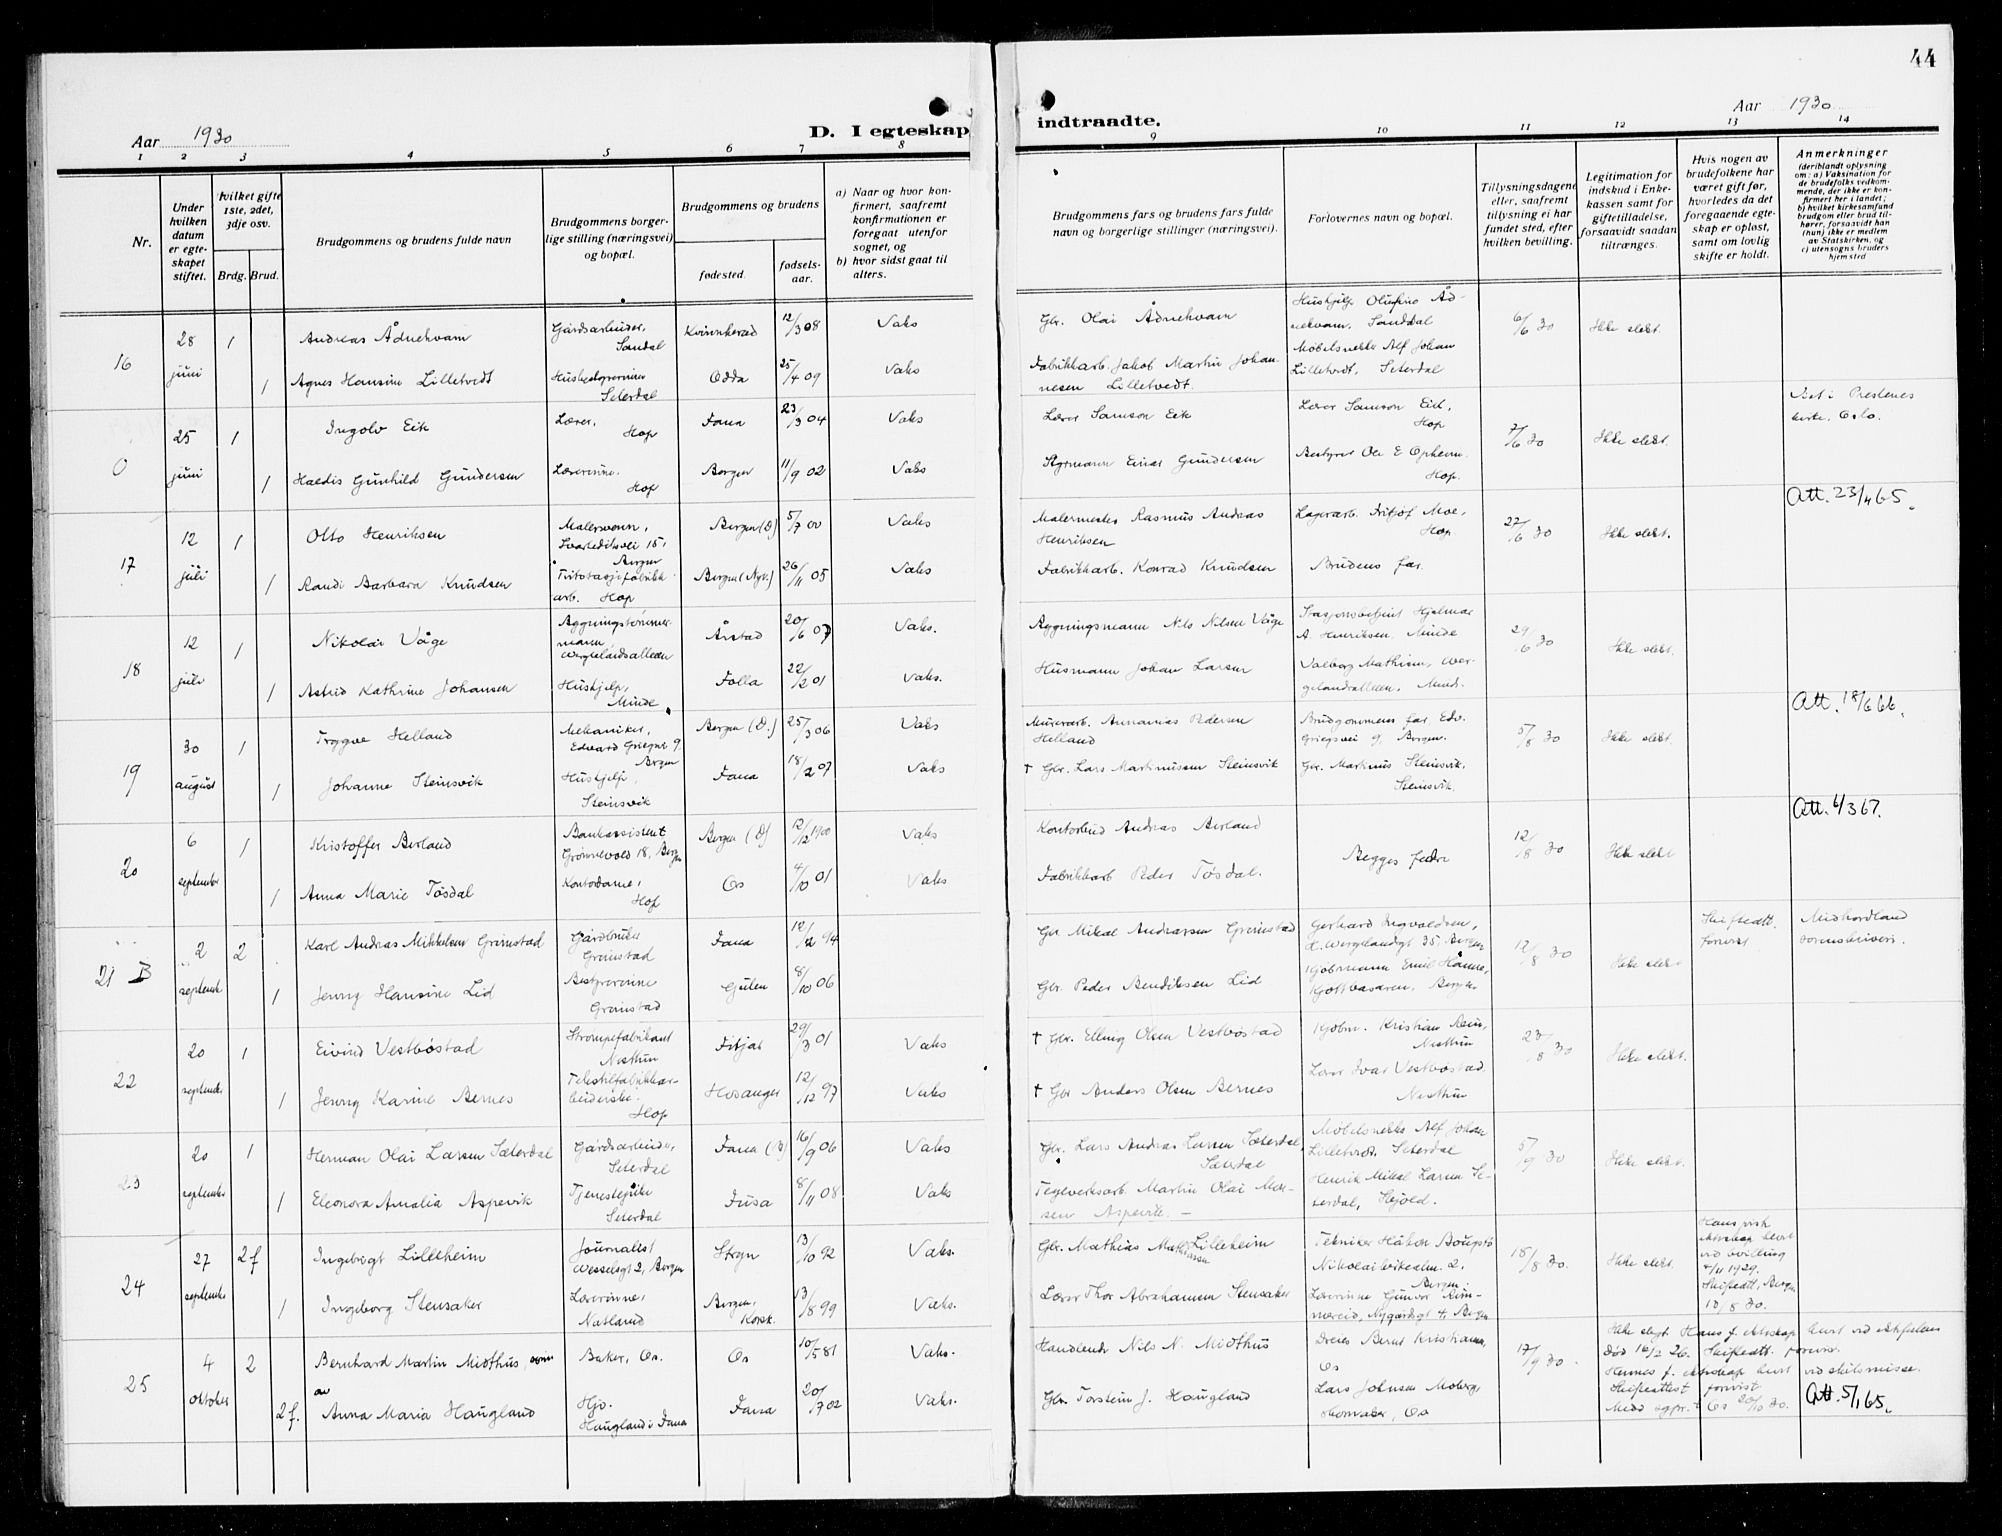 44
Aar 1930
D. I egteskap indtraadte.
Aar 1930
1 2 3 4 5 6 7 8 9 10 11 12 13 14
Nr.
Under hvilken datum er egteskapet stiftet.
hvilket gifte 1ste, 2det, 3dje osv.
Brdg. Brud.
Brudgommens og brudens fulde navn
Brudgommens borgerlige stilling (næringsvei) og bopæl.
Brudgommens og brudens
fødested.
fødselsaar.
a) Naar og hvor konfirmert, saafremt konfirmationen er foregaat utenfor sognet, og
b) hvor sidst gaat til alters.
Brudgommens fars og brudens fars fulde navn og borgerlige stillinger (næringsvei).
Forlovernes navn og bopæl.
Tillysningsdagene eller, saafremt tillysning ei har fundet sted, efter hvilken bevilling.
Legitimation for indskud i Enkekassen samt for giftetilladelse, forsaavidt saadan tiltrænges.
Hvis nogen av brudefolkene har været gift før, hvorledes da det foregaaende egteskap er opløst, samt om lovlig skifte er holdt.
Anmerkninger
(deriblandt oplysning om: a) Vaksination for de brudefolks vedkommende, der ikke er konfirmert her i landet; b) hvilket kirkesamfund brudgom eller brud tilhører, forsaavidt han (hun) ikke er medlem av Statskirken, og c) utensogns bruders hjemsted
16 28 juni 1 Andreas Ådnekvam Gårdsarbeider, Søndal Kvinnherad 12/3 08 Vaks Gbr. Olai Ådnekvam 6/6 30 Ikke slekt.
1 Agnes Hansine Lilletvedt Seterdal Odda 25/4 09 Vaks Fabrikkarb. Jakob Martin Johannesen Lilletvedt. Møbelsnekker Alf Johan Lilletvedt, Seterdal
0 25 juni 1 Ingolv Eik Lærer, Hop Fana 23/3 04 Vaks Lærer Samson Eik Lærer Samson Eik, Hop 7/6 30 Ikke slekt. kirke, Oslo.
1 Haldis Gunhild Gundersen Lærerinne. Hop Bergen 11/9 02 Vaks Styrmann Einar Gundersen Bestyrer Ole E Opheim Hop.
17 12 juli 1 Otto Henriksen Malersvenn, Bergen Bergen (D) 5/7 00 Vaks Malermester Rasmus Andreas Henriksen Lagerarb. Fritjof Moe, Hop 27/6 30 Ikke slekt. Att. 23/4 65.
1 Randi Barbara Knudsen Trikotasjefabrikkarb. Hop Bergen (Nyk.) 26/11 05 Vaks Fabrikkarb. Konrad Knudsen Brudens far.
18 12 juli 1 Nikolai Våge Bygningstømmermann, Wergelandsalleen Årstad 20/6 07 Vaks. Bygningsmann Nils Nilsen Våge Stasjonsbetjent Hjelmar A. Henriksen, Minde 29/6 30 Ikke slekt.
1 Astrid Kathrine Johansen Hushjelp, Minde Folla 22/2 01 Vaks. Husmann Johan Larsen Valborg Mathisen, Wergelandsalleen, Minde.
19 30 august 1 Trygve Helland Mekaniker, Edvard Griegsv 9, Bergen Bergen (D.) 25/3 06 Vaks Murerarb. Annanias Pedersen Helland Brudgommens far, Edv. Griegsvei 9, Bergen. 5/8 30 Ikke slekt. Att. 18/6 66.
1 Johanne Steinsvik Hushjelp, Steinsvik Fana 18/2 07 Vaks † Gbr. Lars Martinussen Steinsvik Gbr. Martinus Steinsvik, Steinsvik.
20 6 september 1 Kristoffer Berland Bankassistent Grønnevold 18, Bergen Bergen (D) 12/12 1900 Vaks Kontorbud Andreas Berland Begges fedre 12/8 30 Ikke slekt Att. 6/3 67.
1 Anna Marie Tøsdal Kontordame, Hop Os 4/10 01 Vaks Fabrikkarb Peder Tøsdal.
21 B 2 september 2 Karl Andreas Mikkelsen Grimstad Gårdbruker Grimstad Fana 12/12 94 Gbr Mikal Andreassen Grimstad Gerhard Ingvaldsen, H. Wergelandsgt 35, Bergen 12/8 30 Ikke slekt Skifteatt. forevist Midhordland sorenskriveri.
1 Jenny Hansine Lid Bestyrerinne Grimstad Gulen 8/10 06 Gbr. Peder Bendiksen Lid Kjøbmann Emil Hanne, Kjøttbasaren, Bergen
22 20 september 1 Eivind Vestbøstad Strømpefabrikant Nesttun Fitjar 29/3 01 Vaks † Gbr. Elling Olsen Vestbøstad Kjøbm. Kristian Rein, Nesttun 23/8 30 Ikke slekt.
1 Jenny Karine Bernes Tekstilfabrikkarbeiderske. Hop Hosanger 12/12 97 Vaks † Gbr Anders Olsen Bernes Lærer Ivar Vestbøstad. Nesttun
23 20 september 1 Herman Olai Larsen Sæterdal Gårdsarbeider, Seterdal Fana (B) 16/9 06 Vaks Gbr. Lars Andreas Larsen Sæterdal, Sæterdal Møbelsnekker Alf Johan Lilletvedt. Seterdal 5/9 30 Ikke slekt.
1 Eleonora Amalia Aspevik Tjenestepike Seterdal Fusa 8/11 08 Vaks Teglverksarb. Martin Olai Monsen Aspevik. — Henrik Mikal Larsen Seterdal, Hjold.
24 27 september 2 f Ingebrigt Lilleheim Journalist Wesselsgt 2, Bergen Stryn 13/10 92 Vaks. Gbr. Mathias Mathiassen Lilleheim Tekniker Håkon Bougstø Nikolaikirkealm. 2, Bergen. 18/8 30. Ikke slekt. Hans f. ekteskap hevet ved bevilling 4/11 1929. Skifteatt., Bergen 13/8 30.
1 Ingeborg Stensaker Lærerinne, Natland Bergen, Korsk. 13/8 99 Vaks. Lærer Thor Abrahamsen Stensaker Lærerinne Gunvor Rimmereid, Nygårdsgt 4, Bergen
25 4 oktober 2 Bernhard Martin Midthus Baker, Os. Os 10/5 81 Vaks. Handlende Nils N. Midthus Dreier Bernt Kristiansen, Os 17/9 30. Ikke slegt. Hans f. ekteskap hevet ved ektefellens død 16/2 26. Skifteatt. forevist.
2 f. Anna Maria Haugland Hjv. Haugland i Fana Fana 20/7 02 Vaks. Gbr. Torstein J. Haugland Lars Johnsen Moberg, skomaker, Os Hennes f. ekteskap hevet ved skilsmisse. Skifteattest forevist. Os 20/10 30. Att. 5/1 65.